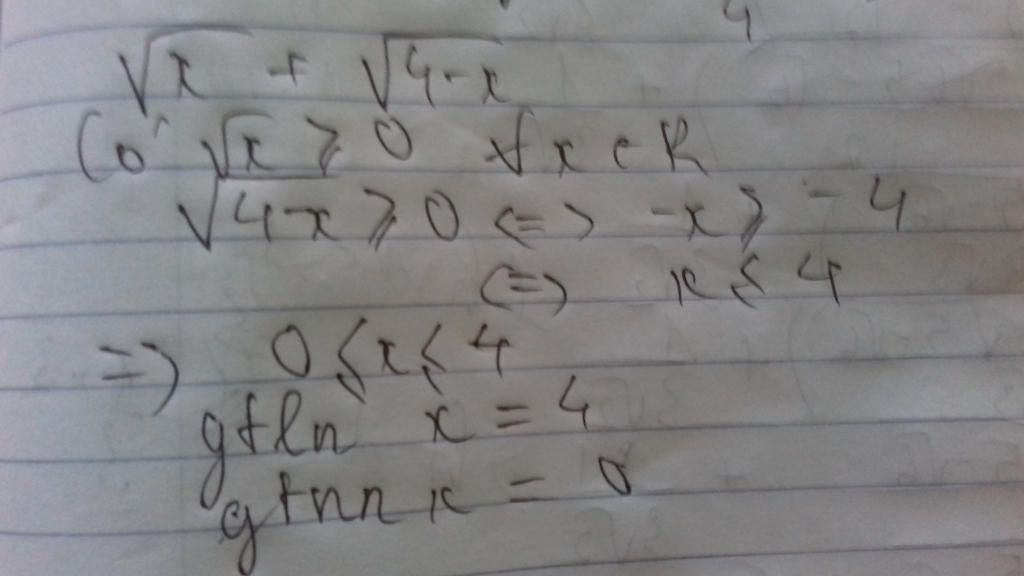 4
√x + √4-x
Có √x ≥ 0 ∀x ∈ R
√4-x ≥ 0 <=> -x ≥ -4
<=> x ≤ 4
=> 0 ≤ x ≤ 4
gtln x = 4
gtnn x = 0